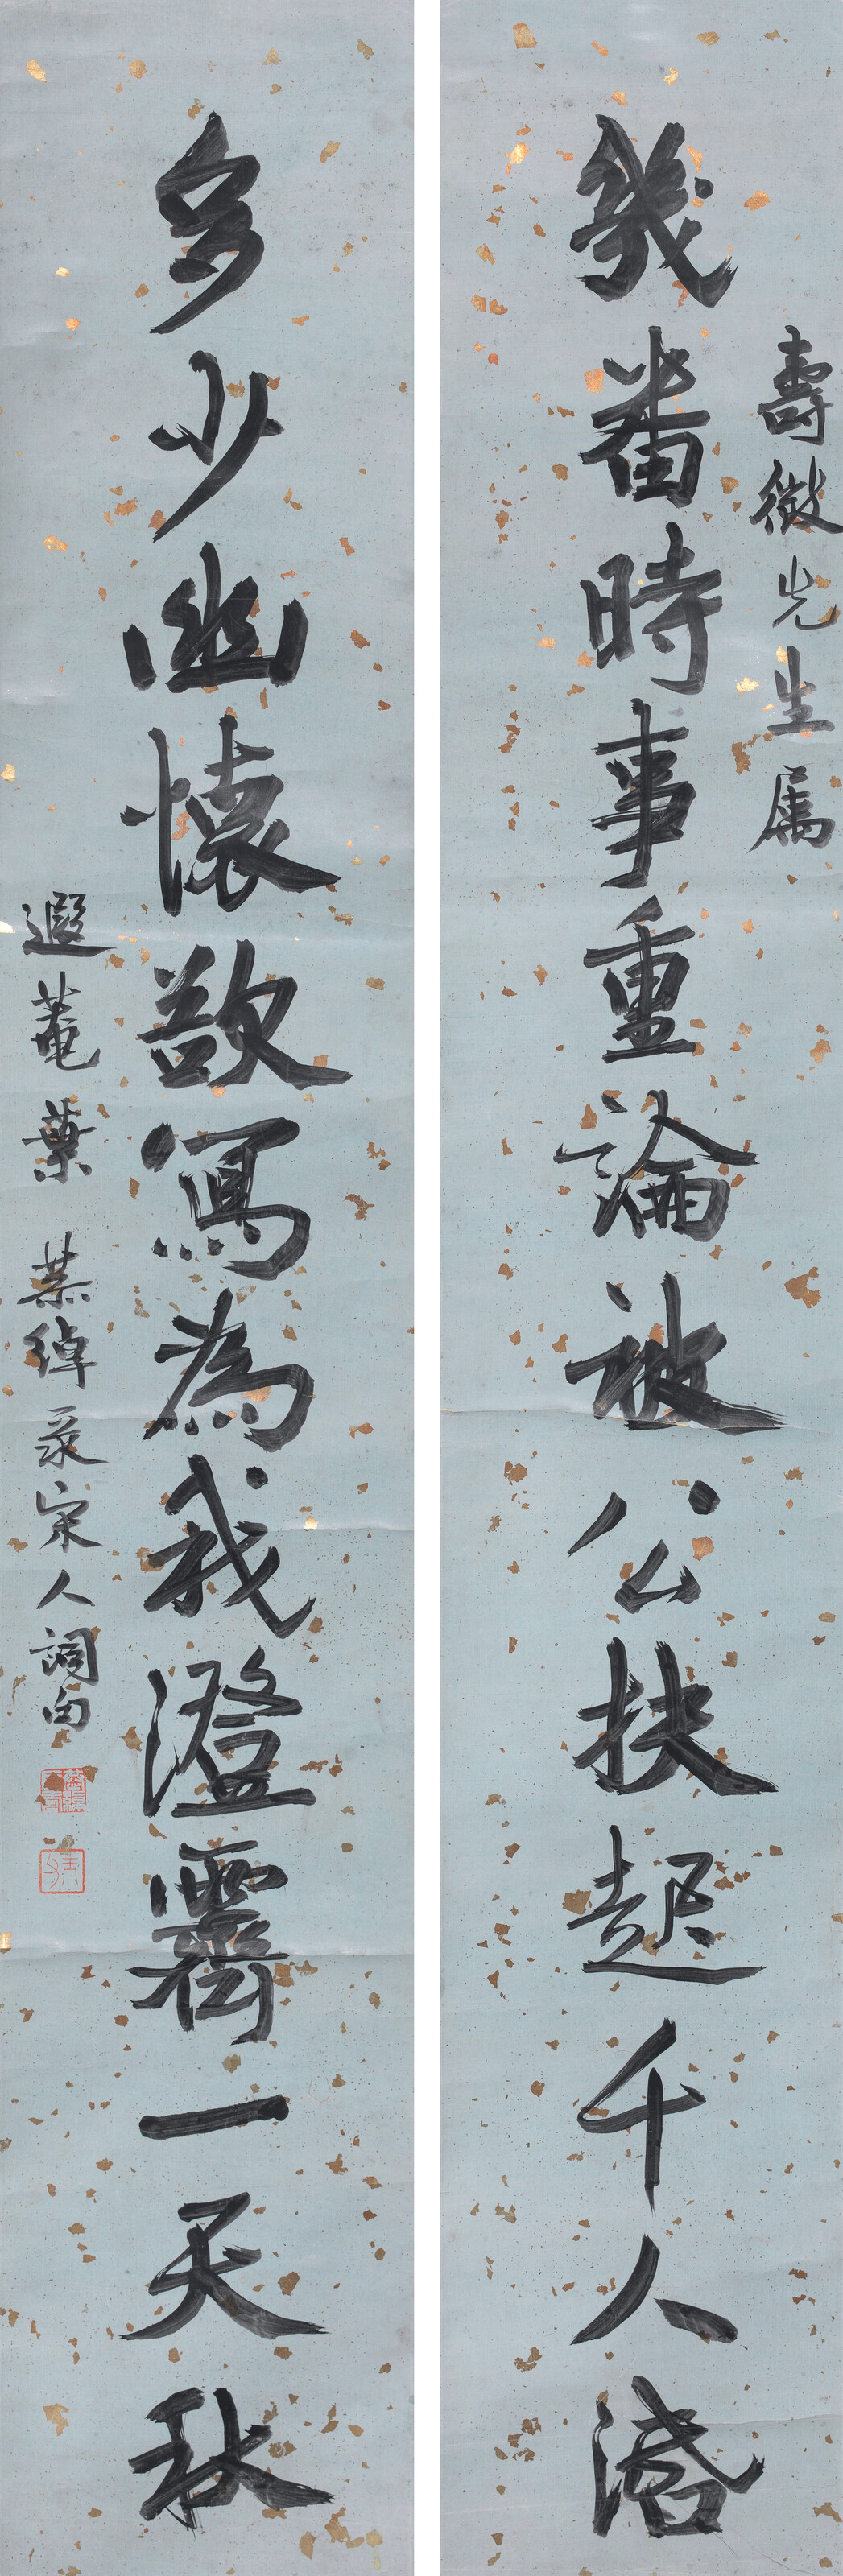 壽徵先生属
幾番時事重論被公扶起千人活
多少幽懷欲寫為我澄霽一天秋
遐菴葉恭綽采宋人詞句